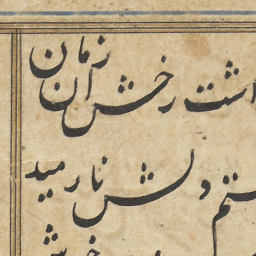 اشت رخش آن زمان
ستم دلش نارمید